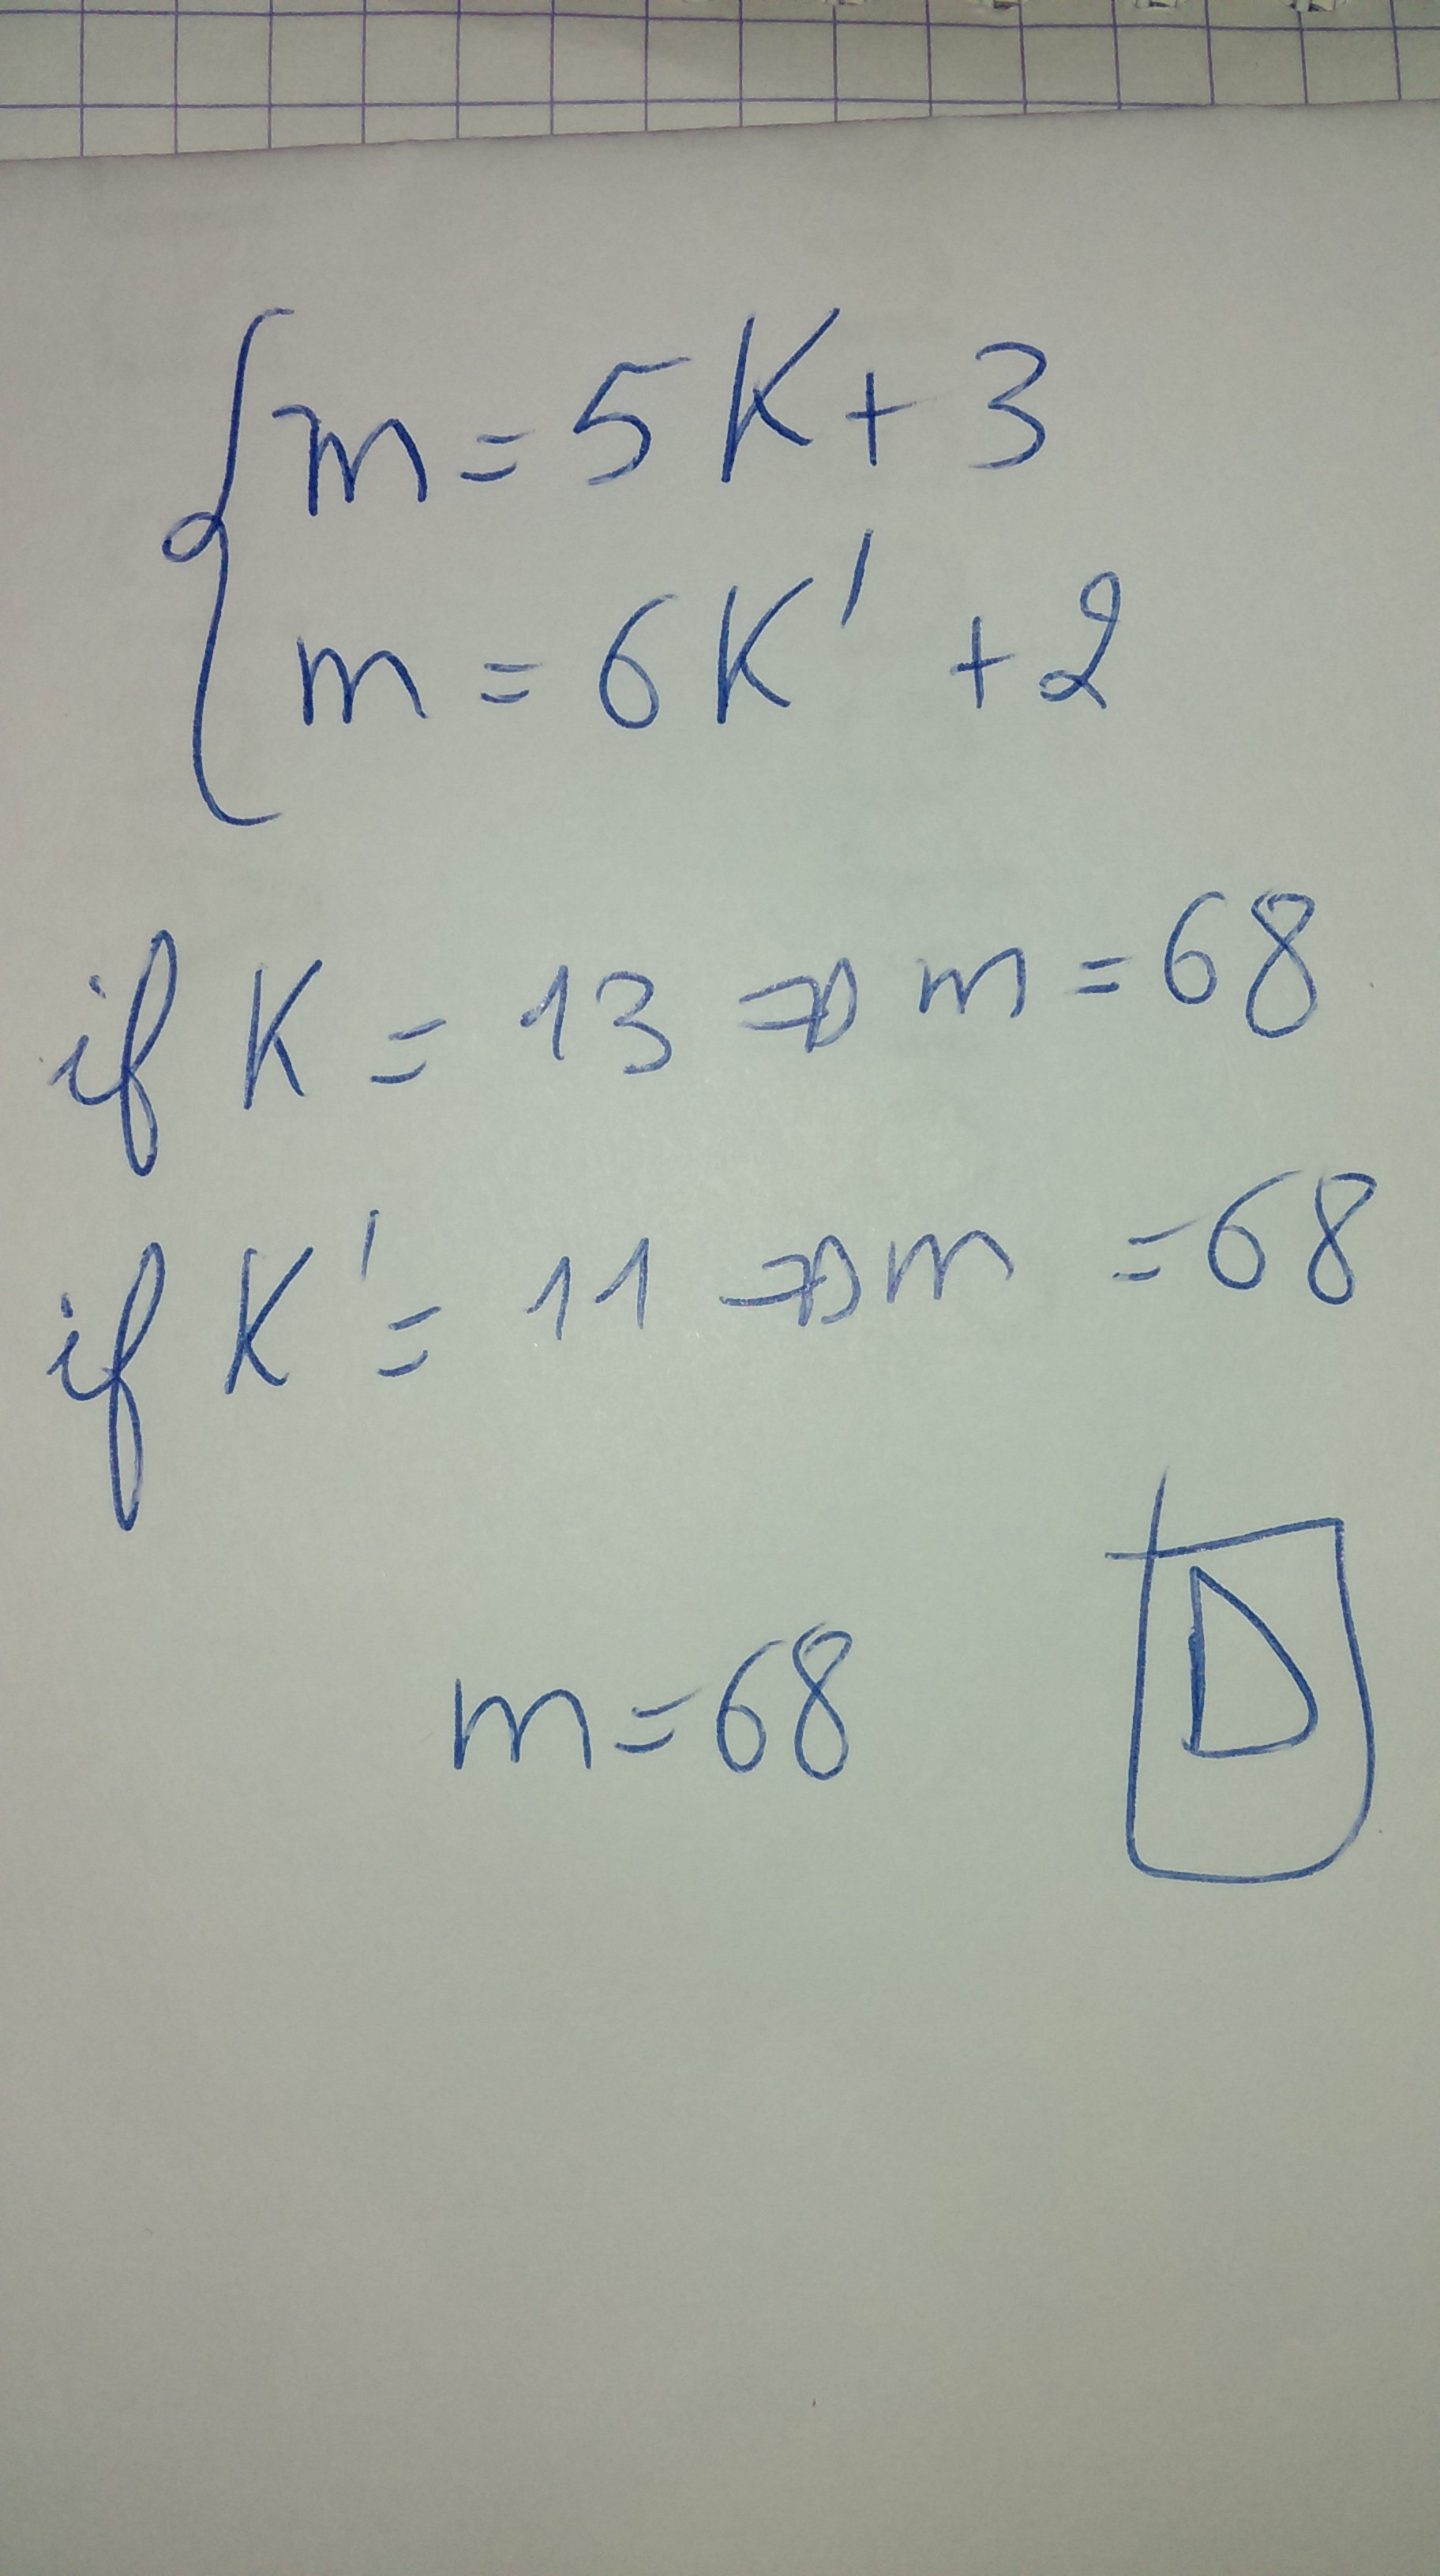 m = 5K + 3
m = 6K' + 2
if K = 13 ⇒ m = 68
if K' = 11 ⇒ m = 68
m = 68 D